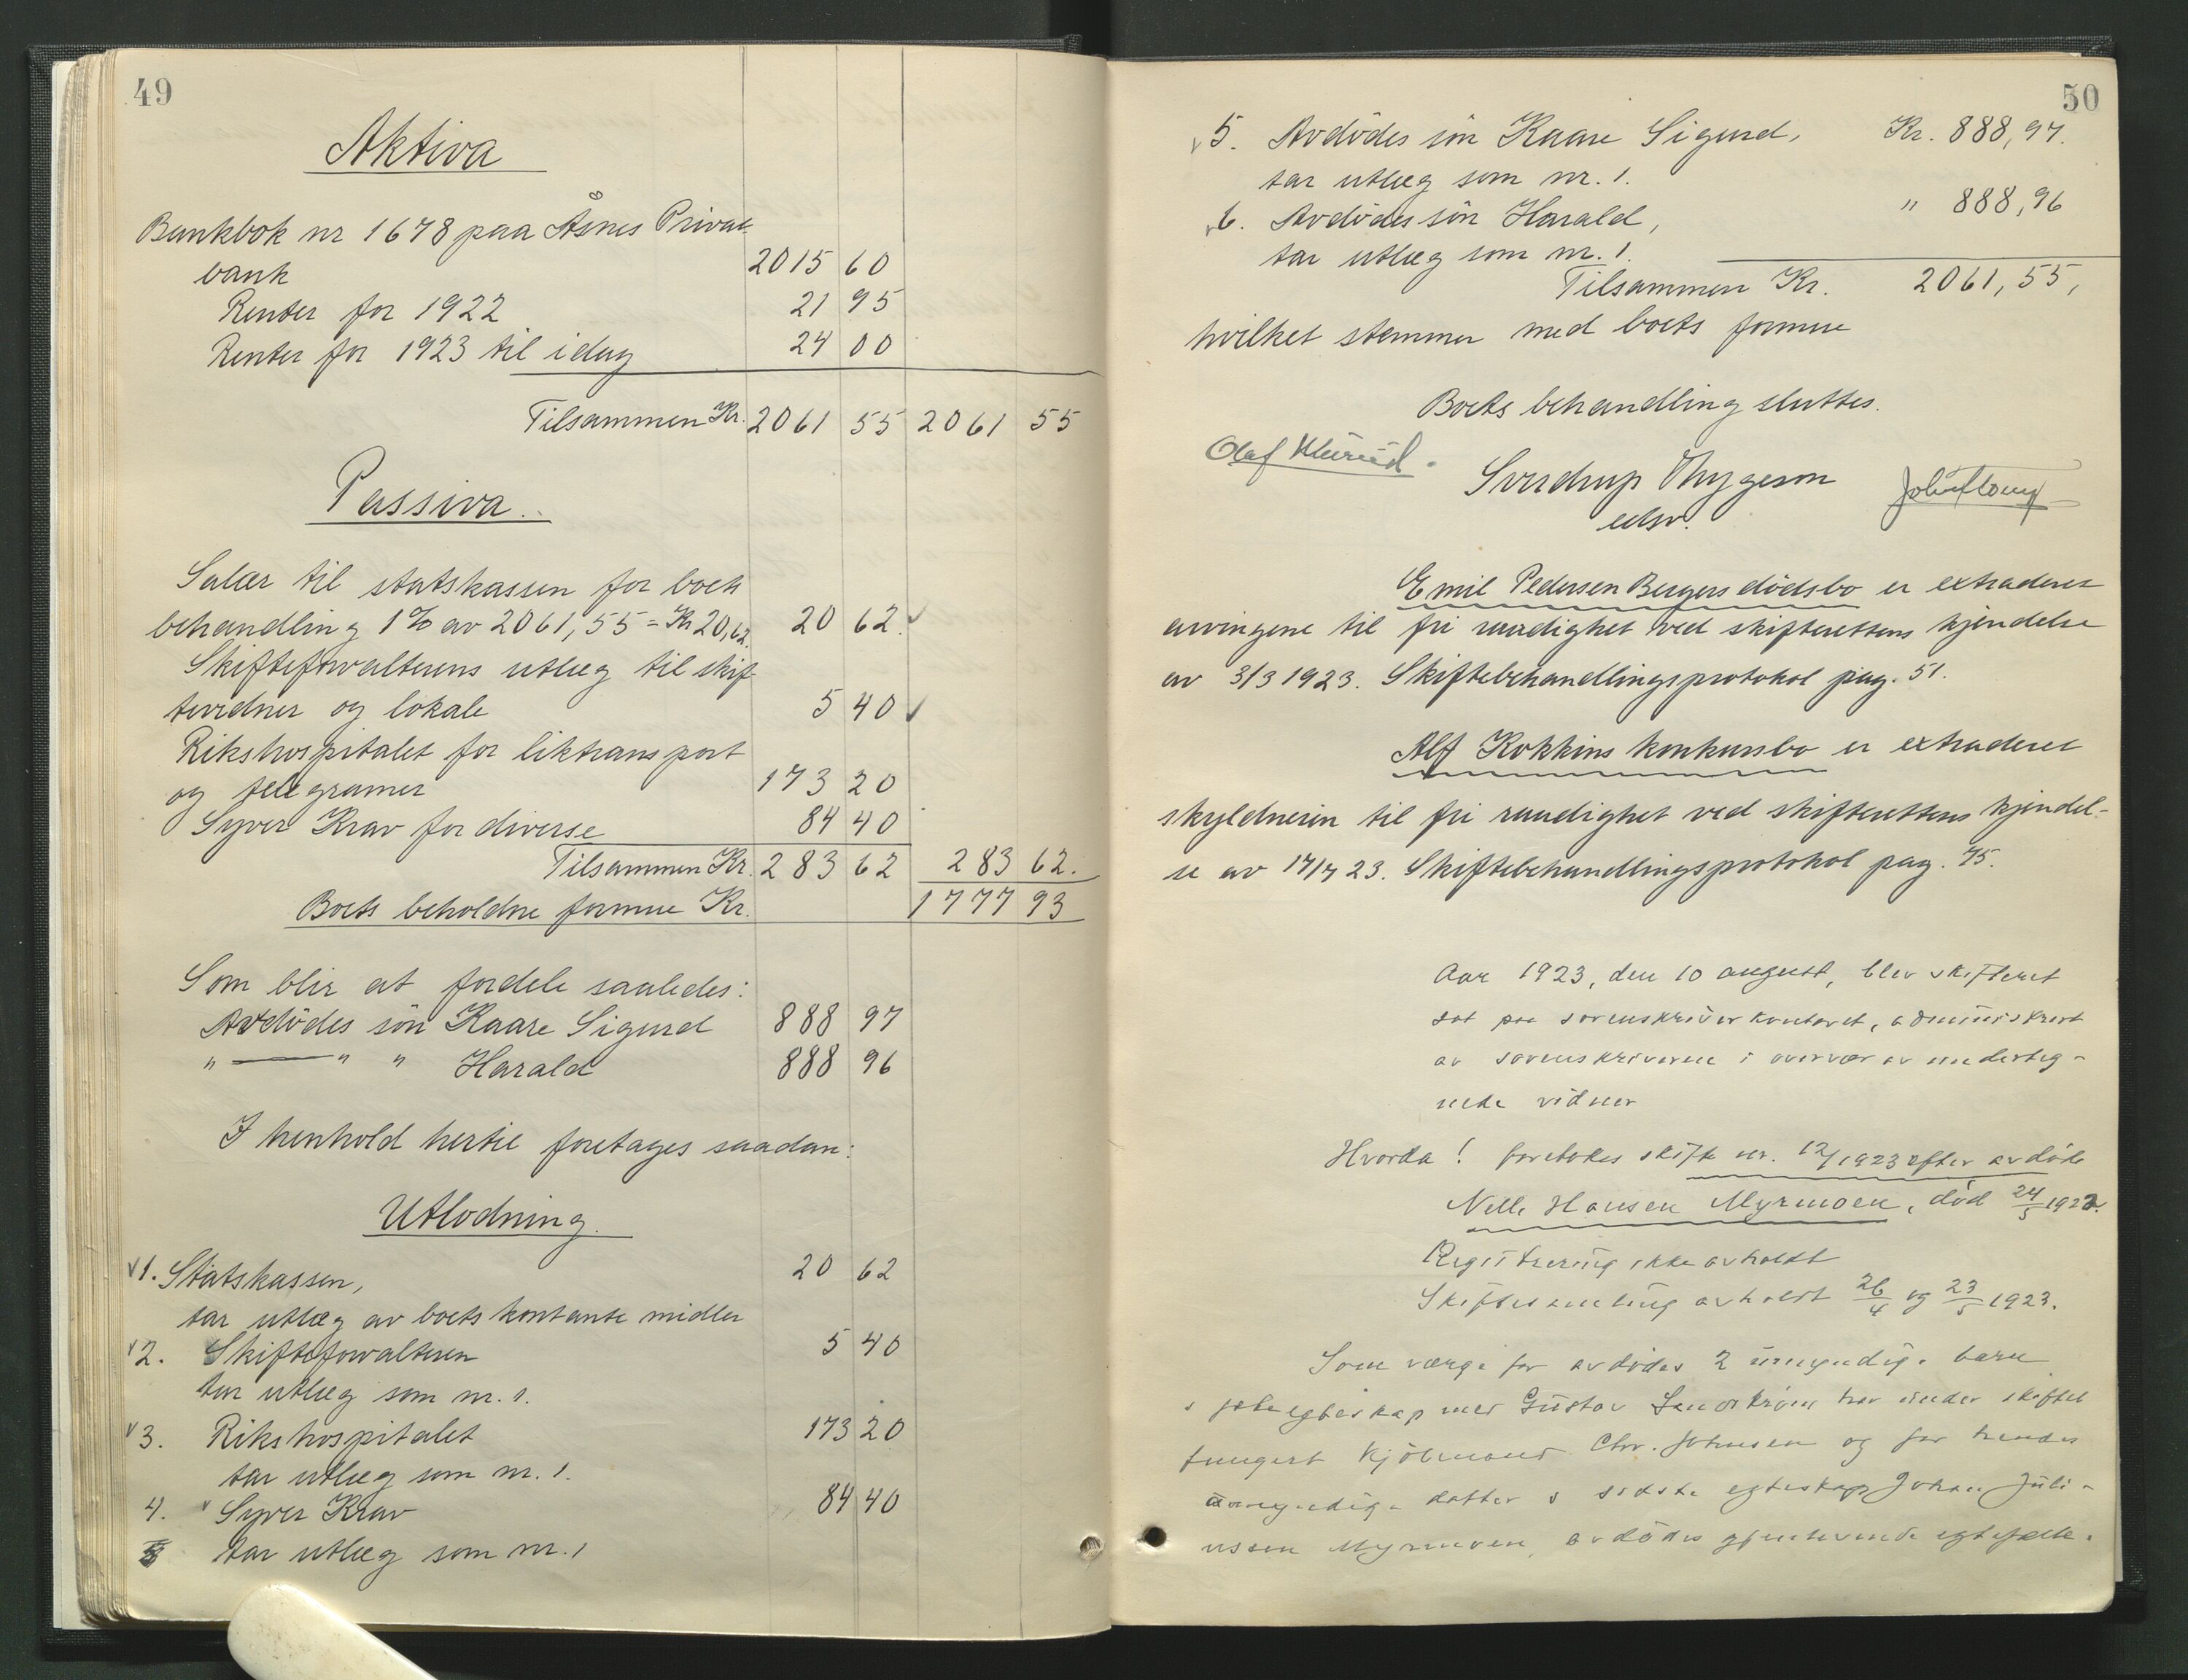 49
Aktiva
Bankbok nr 1678 paa Åsnes Privat-
bank 2015 60
Renter for 1922 21 95
Renter for 1923 til idag 24 00
Tilsammen Kr. 2061 55 2061 55
Passiva.
Salær til statskassen for boets
behandling 1% av 2061,55 = Kr 20,62 20 62.
Skifteforvalterens utlæg til skif-
tevidner og lokale 5 40
Rikshospitalet for liktransport
og telegramer 173 20
Syver Krav for diverse 84 40
Tilsammen Kr. 283 62 283 62.
Boets beholdne formue Kr. 1777 93
Som blir at fordele saaledes:
Avdödes sön Kaare Sigurd 888 97
" — " " Harald 888 96
I henhold hertil foretages saadan:
Utlodning.
1. Statskassen, 20 62
tar utlæg av boets kontante midler
2. Skifteforvalteren 5 40
tar utlæg som nr. 1.
3. Rikshospitalet 173 20
tar utlæg som nr. 1.
4. Syver Krav 84 40
tar utlæg som nr. 1
50
5. Avdödes sön Kaare Sigurd, Kr. 888,97.
tar utlæg som nr. 1.
6. Avdödes sön Harald, " 888,96
tar utlæg som nr. 1.
Tilsammen Kr. 2061,55,
hvilket stemmer med boets formue
Boets behandling sluttes.
Olaf
Sverdrup Thygeson
edsv.
Emil Pedersen Bergers dödsbo er extraderet
arvingene til fri raadighet ved skifterettens kjendelse
av 3/3 1923. Skiftebehandlingsprotokol pag. 51.
Alf Kokkins konkursbo er extraderet
skyldneren til fri raadighet ved skifterettens kjendel-
se av 17/7 23. Skiftebehandlingsprotokol pag. 75.
Aar 1923, den 10 august, blev skifteret
sat paa sorenskriverkontoret, administrert
av sorenskriveren i overvær av underteg-
nede vidner
Hvorda! foretokes skifte nr. 12/1923 efter avdöde
Nelle Hansen Myrmoen, död 24/5 1922.
Registrering ikke avholdt
Skiftesamling avholdt 26/4 og 23/5 1923.
Som værge for avdödes 2 umyndige barn
i egteskap med Gustav har under skiftet
fungert Kjöbmand Chr. Johnsen og for hendes
umyndige datter i sidste egteskap Johan Juli-
ussen Myrmoen, avdödes gjenlevende egtefælle.